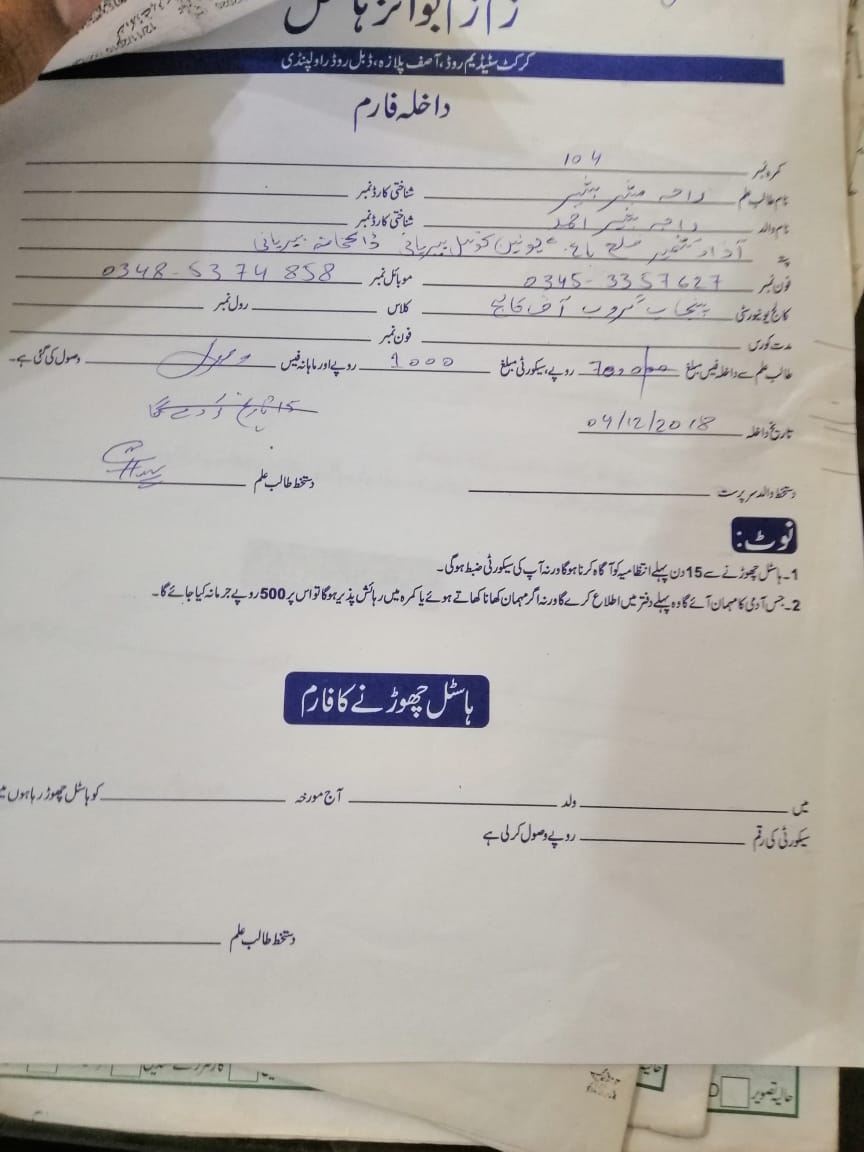 زم زم بوائز ہاسٹل
کرکٹ سٹیڈیم روڈ، آصف پلازہ، ڈبل روڈ راولپنڈی
داخلہ فارم
کمرہ نمبر 104
نام طالب علم راجہ مبشر بشیر شناختی کارڈ نمبر
نام والد راجہ بشیر احمد شناختی کارڈ نمبر
پتہ آزاد کشمیر ضلع باغ یونین کونسل بیرپانی ڈاکخانہ بیرپانی
فون نمبر 0345-3357627 موبائل نمبر 0348-5374858
کالج یونیورسٹی پنجاب گروپ آف کالج کلاس رول نمبر
مدت کورس فون نمبر
طالب علم سے داخلہ فیس مبلغ روپے، سیکورٹی مبلغ 1000 روپے اور ماہانہ فیس وصول وصول کی گئی ہے۔
15 تاریخ کو دے گا
تاریخ داخلہ 04/12/2018
دستخط والد سرپرست دستخط طالب علم
نوٹ:
1۔ ہاسٹل چھوڑنے سے 15 دن پہلے انتظامیہ کو آگاہ کرنا ہوگا ورنہ آپ کی سیکورٹی ضبط ہوگی۔
2۔ جس آدمی کا مہمان آئے گا وہ پہلے دفتر میں اطلاع کرے گا ورنہ اگر مہمان کھانا کھاتے ہوئے یا کمرہ میں رہائش پذیر ہوگا تو اس پر 500 روپے جرمانہ کیا جائے گا۔
ہاسٹل چھوڑنے کا فارم
میں ولد آج مورخہ کو ہاسٹل چھوڑ رہا ہوں
سیکورٹی کی رقم روپے وصول کرلی ہے
دستخط طالب علم
حالیہ تصویر